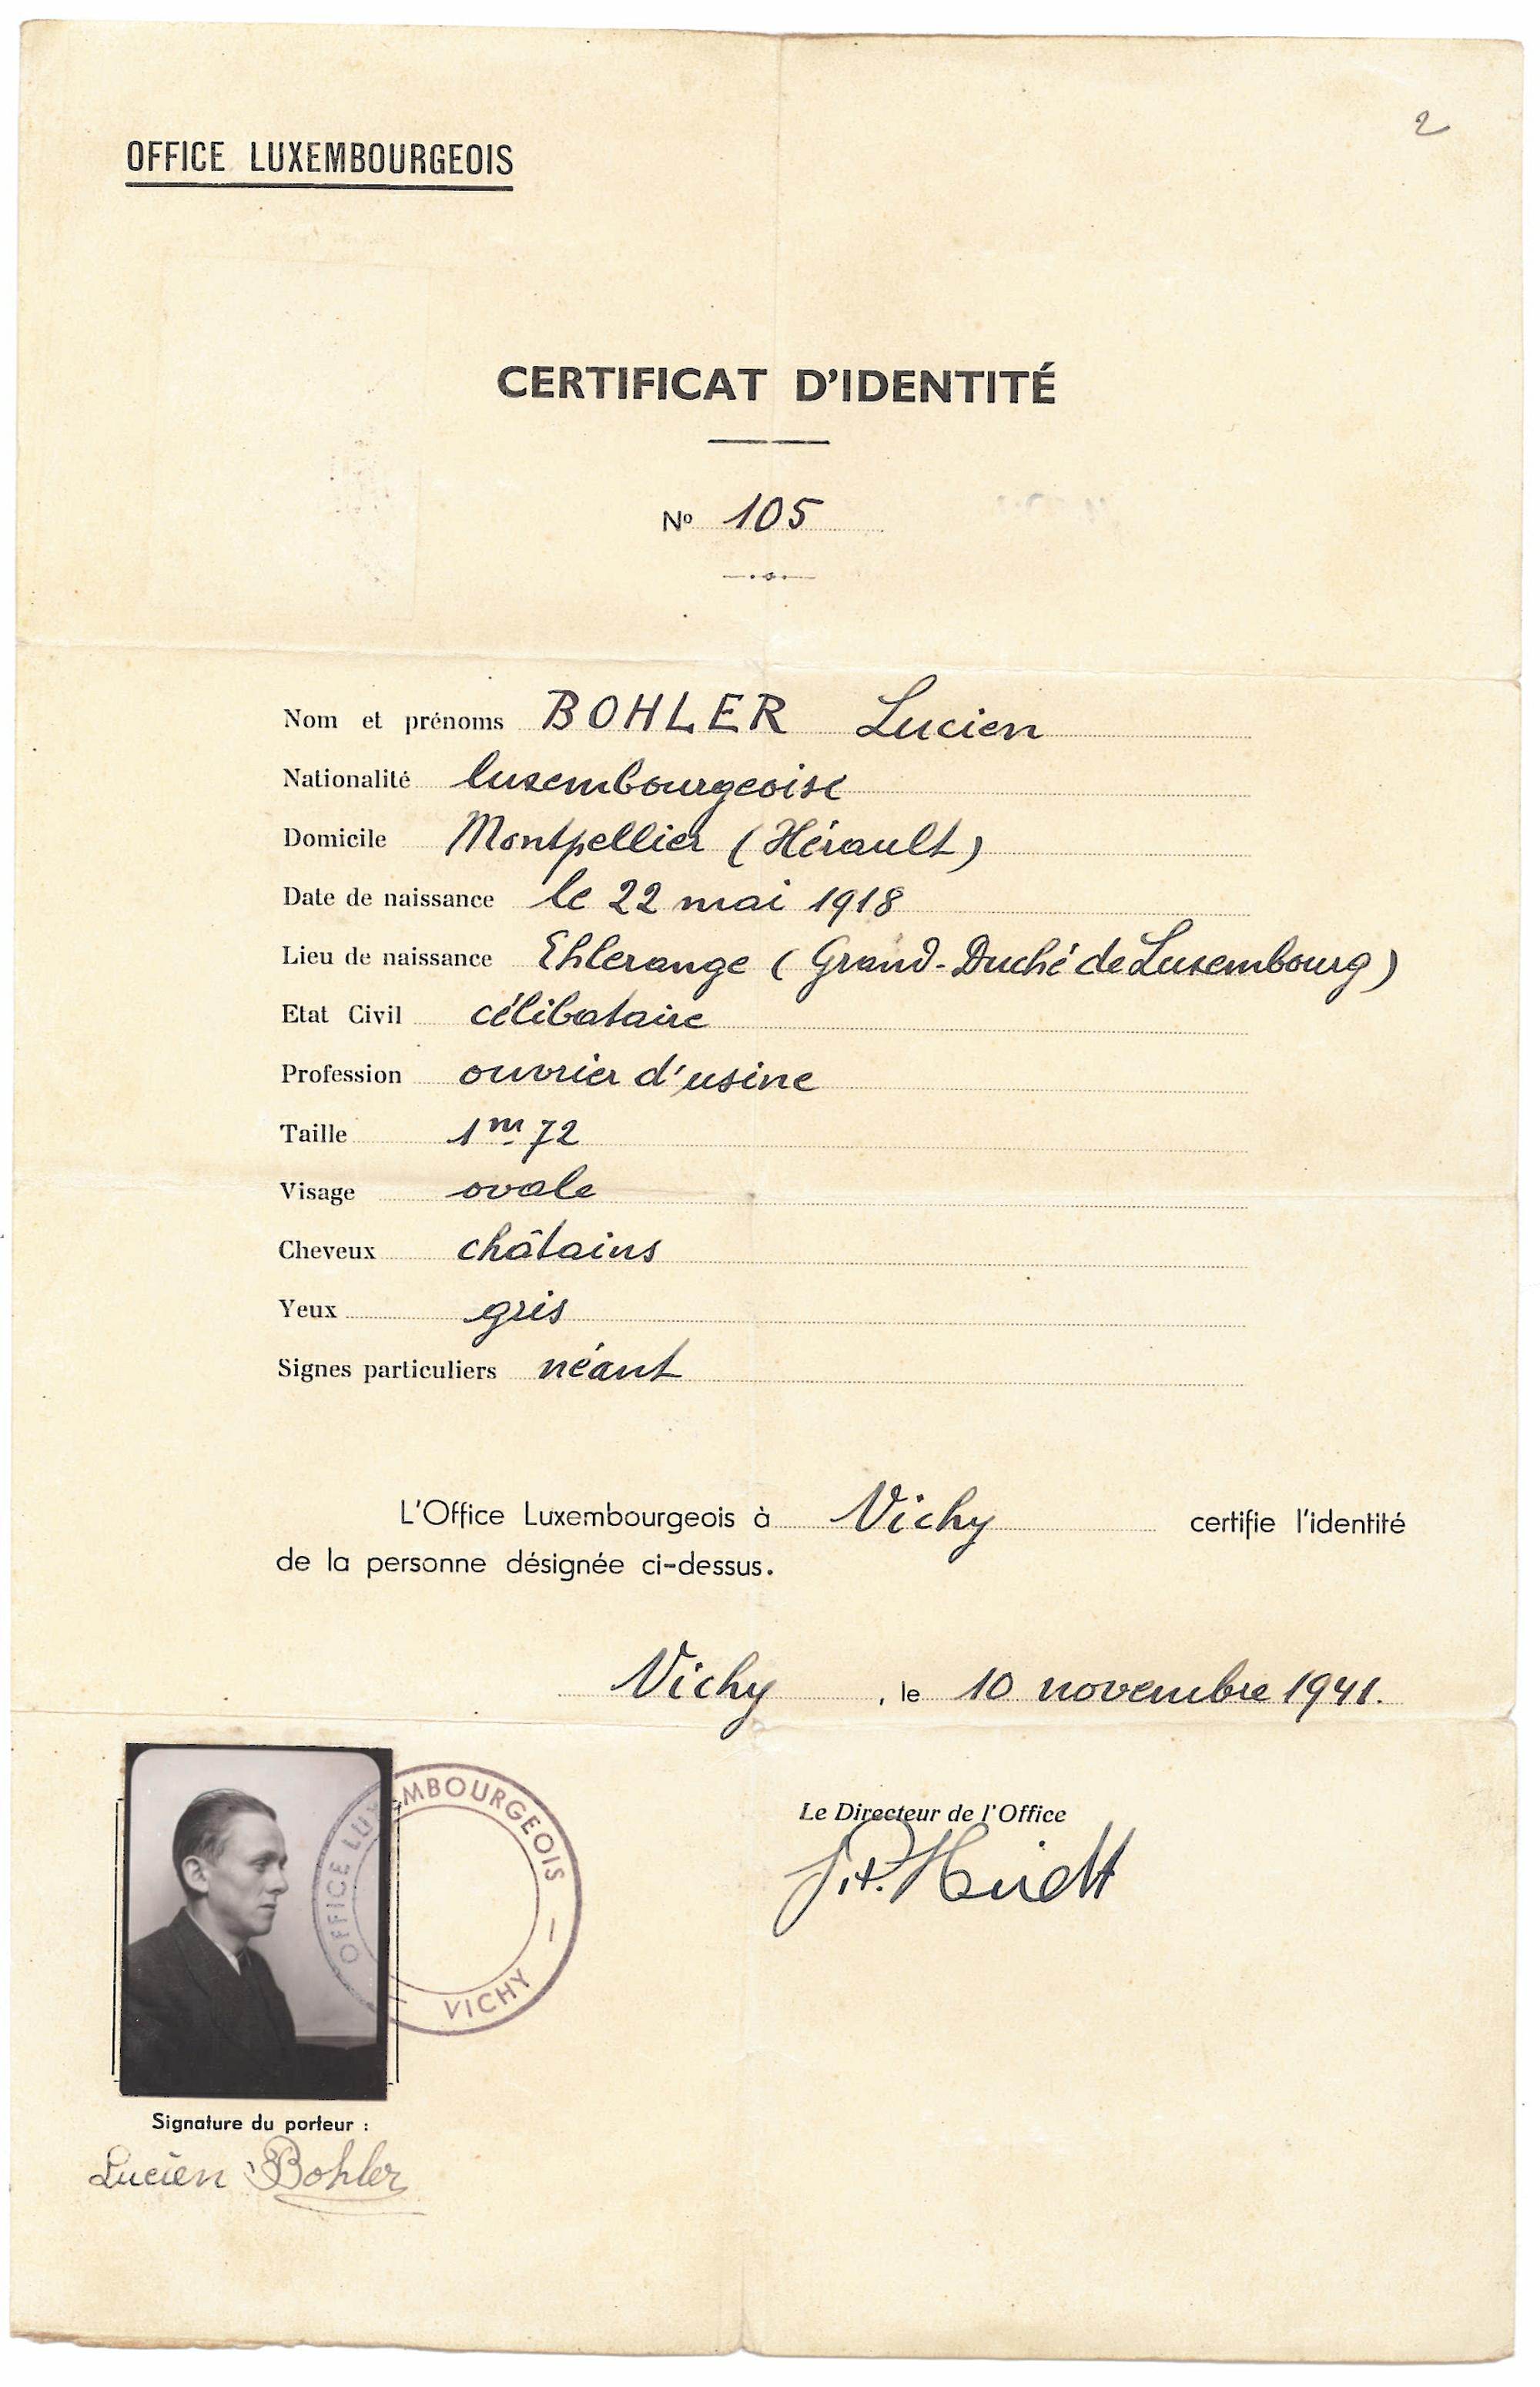 2
OFFICE LUXEMBOURGEOIS
CERTIFICAT D'IDENTITÉ
Nº 105
Nom et prénoms BOHLER Lucien
Nationalité luxembourgeoise
Domicile Montpellier (Hérault)
Date de naissance le 22 mai 1918
Lieu de naissance Ehlerange (Grand-Duché de Luxembourg)
Etat Civil célibataire
Profession ouvrier d'usine
Taille 1m 72
Visage ovale
Cheveux châtains
Yeux gris
Signes particuliers néant
L'Office Luxembourgeois à Vichy certifie l'identité
de la personne désignée ci-dessus.
Vichy, le 10 novembre 1941.
OFFICE LUXEMBOURGEOIS — VICHY —
Le Directeur de l'Office
Signature du porteur :
Lucien Bohler